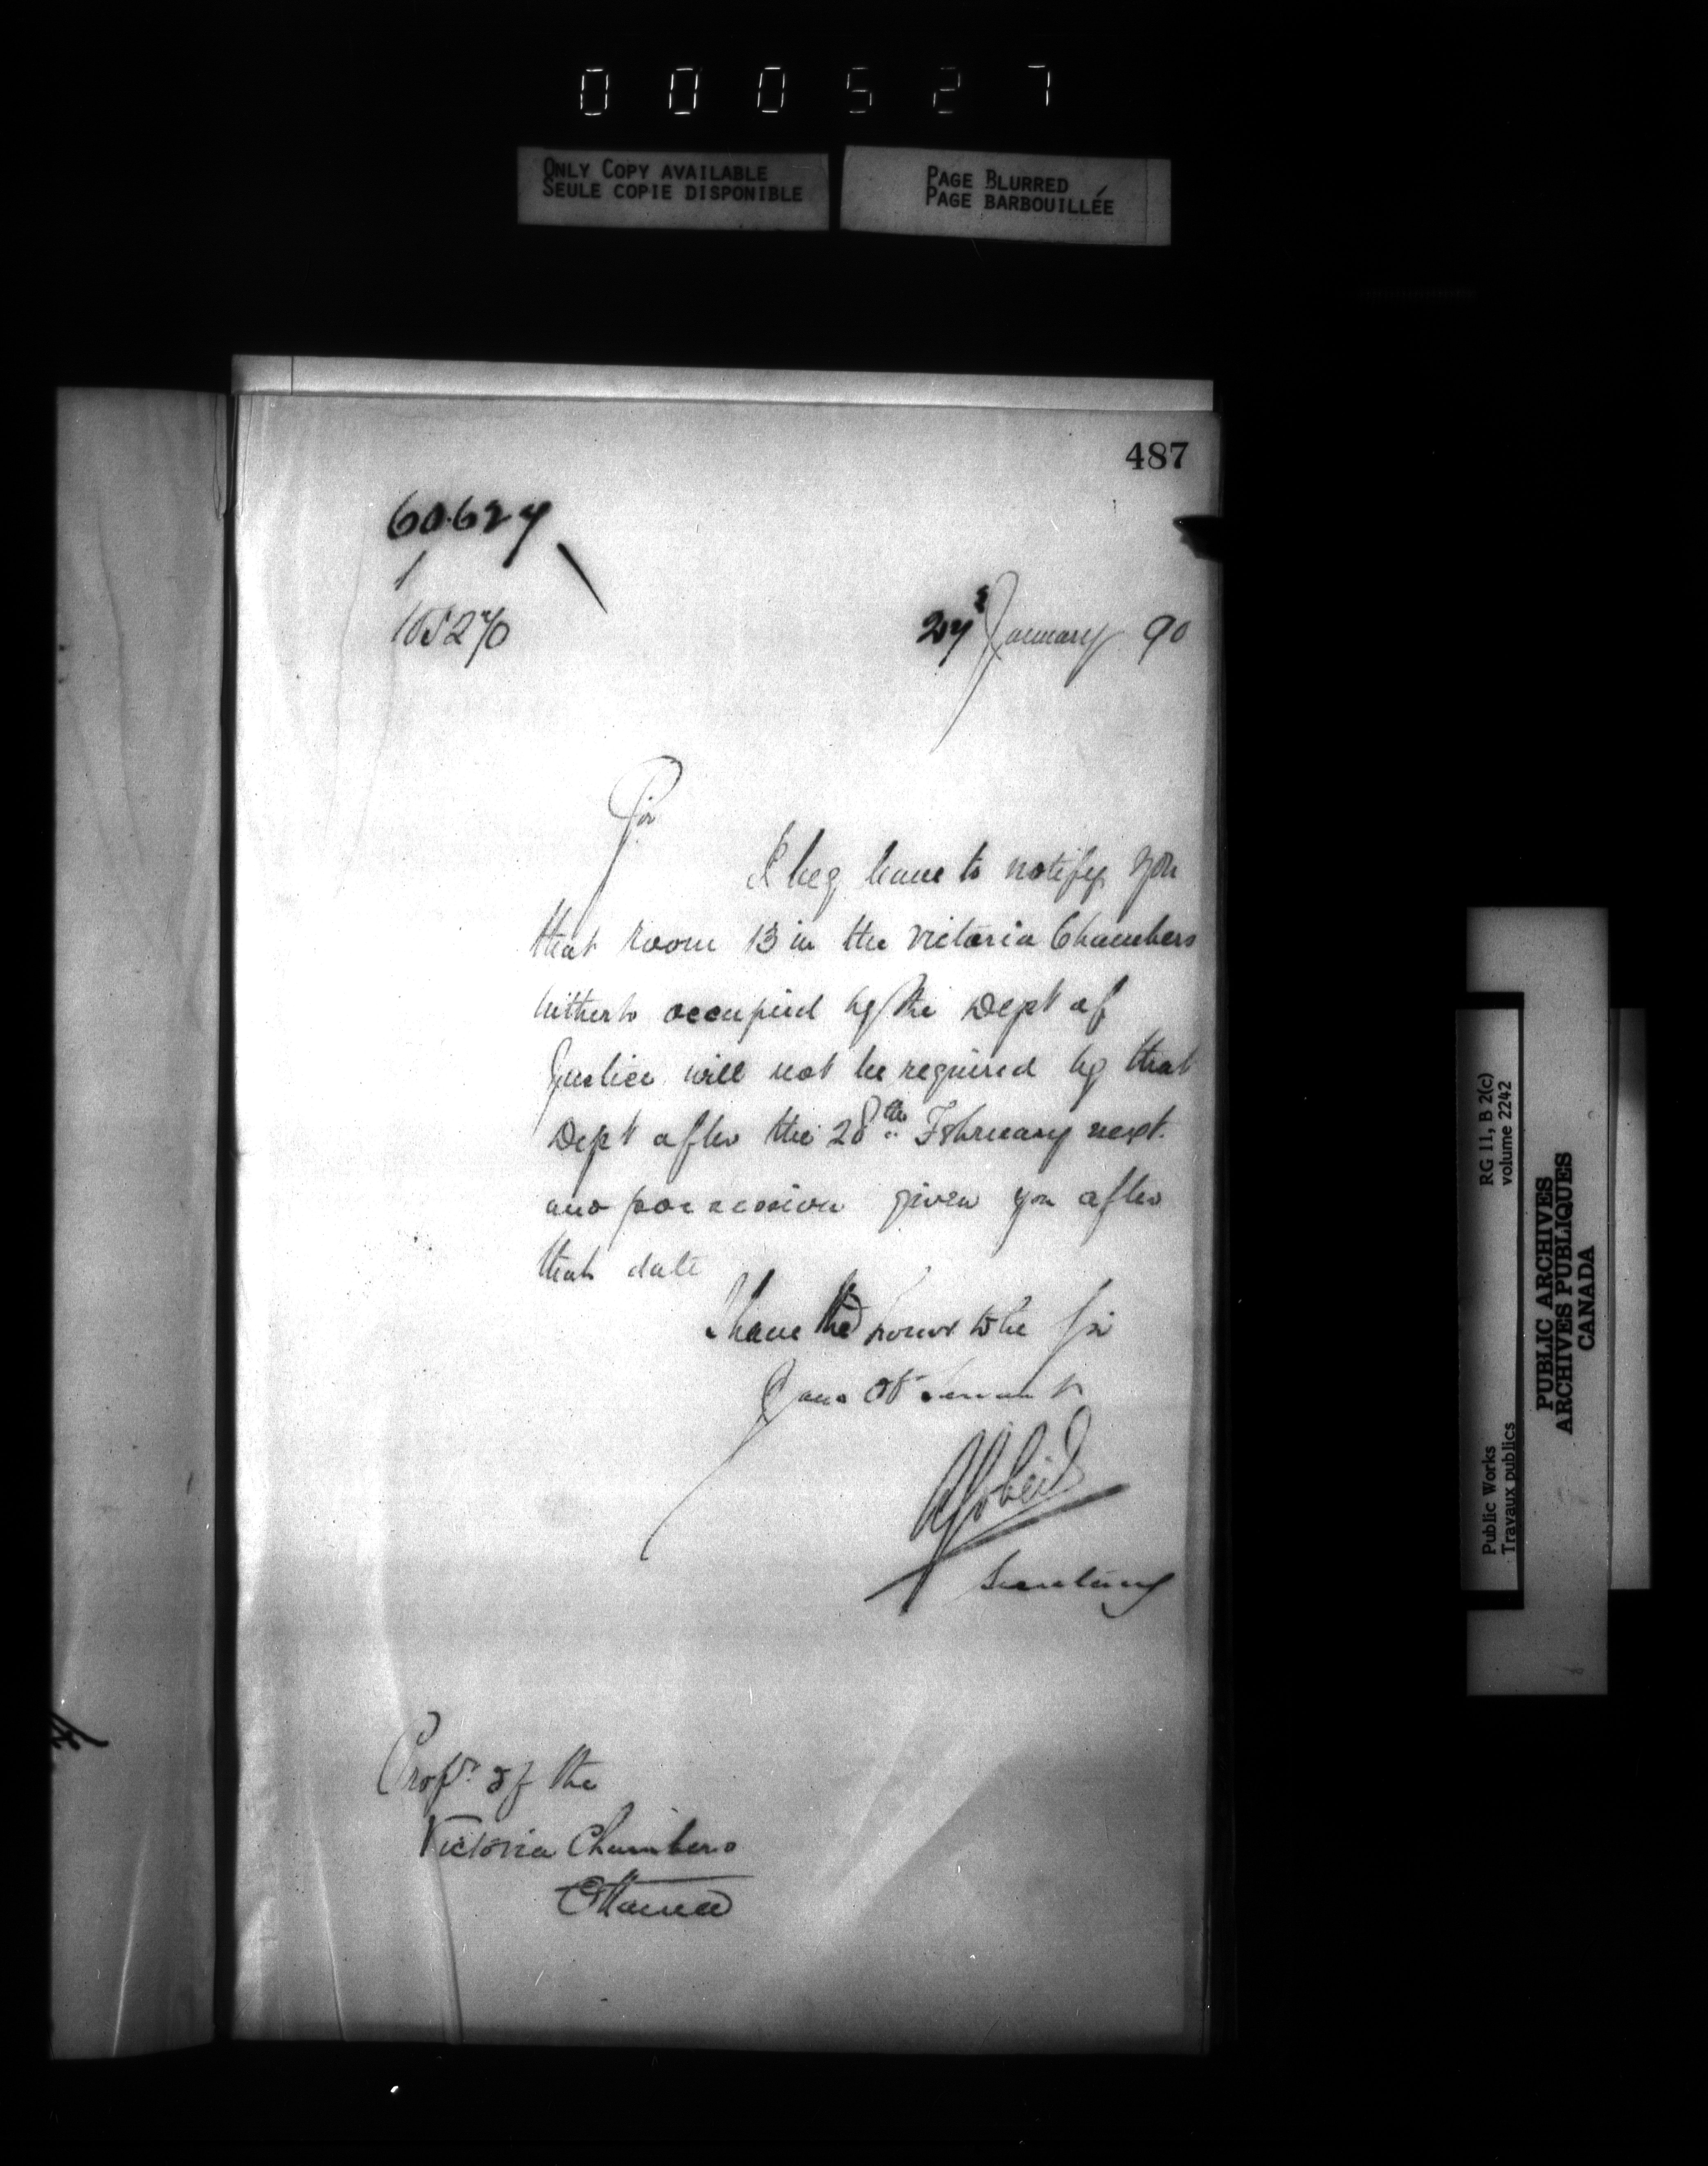 000527
ONLY COPY AVAILABLE
SEULE COPIE DISPONIBLE
PAGE BLURRED
PAGE BARBOUILLÉE
487
60627
1
105270
27 January 90
Sir
I beg leave to notify you
that Room 13 in the Victoria Chambers
hitherto occupied by the Dept of
Justice will not be required by that
Dept after the 28th February next.
and possession given you after
that date
I have the honor to be Sir
Your Ob Servant
A Gobeil
Secretary
Propr. of the
Victoria Chambers
Ottawa
RG 11, B 2(c)
volume 2242
Public Works
Travaux publics
PUBLIC ARCHIVES
ARCHIVES PUBLIQUES
CANADA